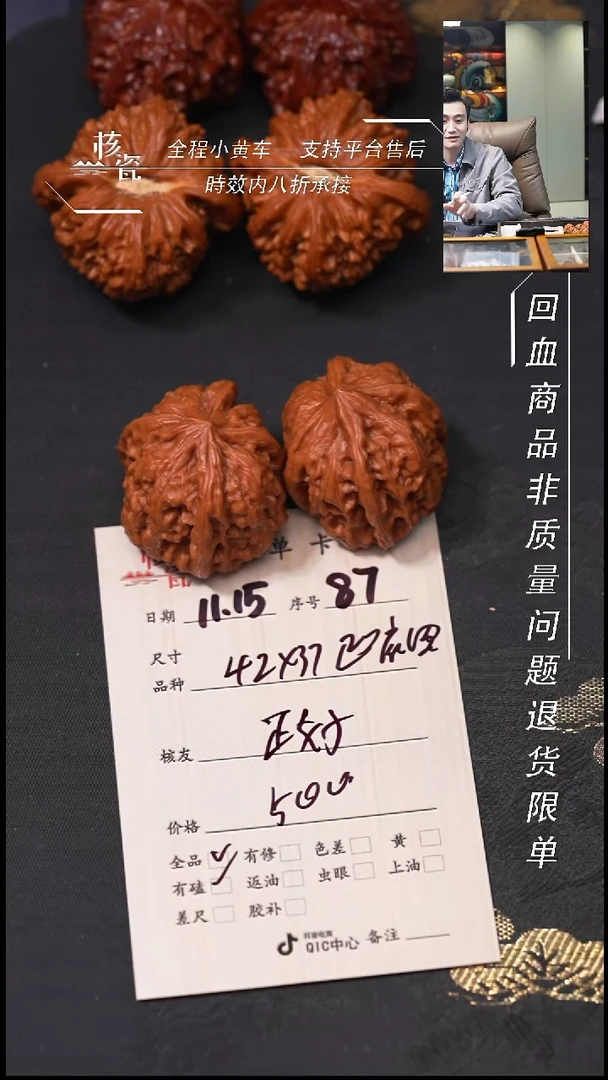 核瓷
全程小黄车 支持平台售后
時效内八折承接
回血商品非质量问题退货限单
单卡
日期 11.15 序号 87
尺寸
品种 42X37
核友
价格 500
全品 ✓ 有修 色差 黄
有磕 返油 虫眼 上油
差尺 胶补
抖音电商
QIC中心 备注